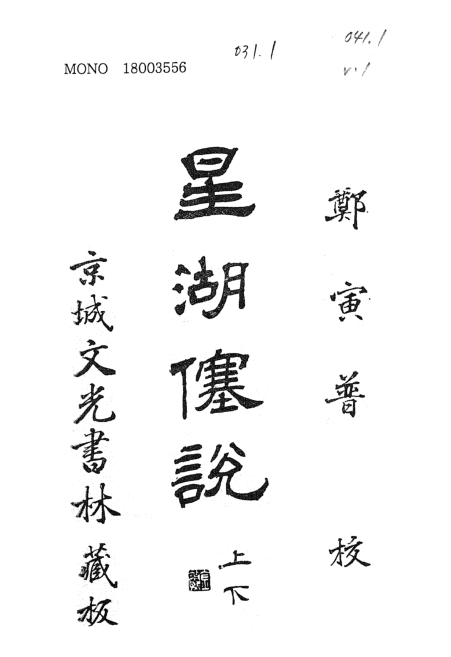 MONO 18003556
031.1
041.1
v.1
鄭寅普 校
星湖僿説
上下
京城文光書林藏板